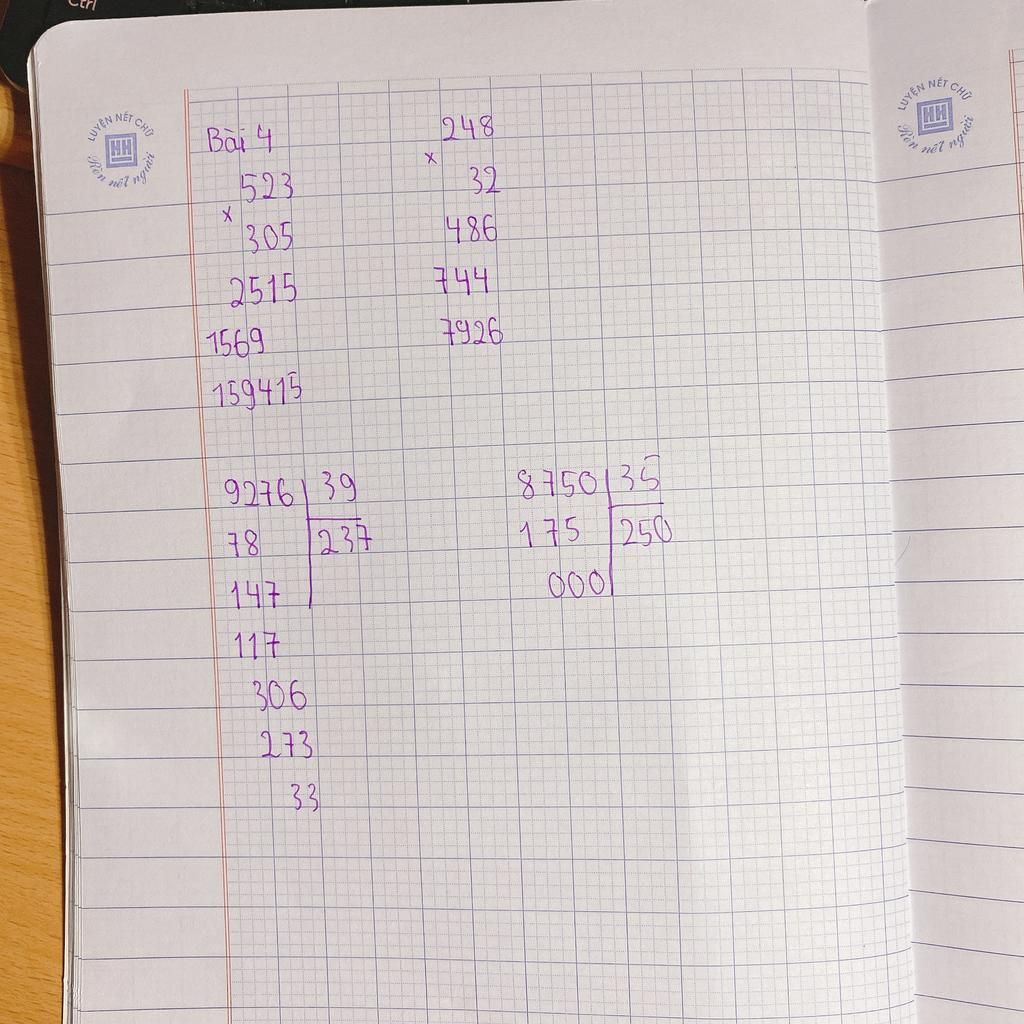 Ctrl
LUYỆN NÉT CHỮ
HH
Rèn nết người
LUYỆN NÉT CHỮ
HH
Rèn nết người
Bài 4
523
x
305
2515
1569
159415
248
x
32
486
744
7926
9276 39
78 237
147
117
306
273
33
8750 35
175 250
000